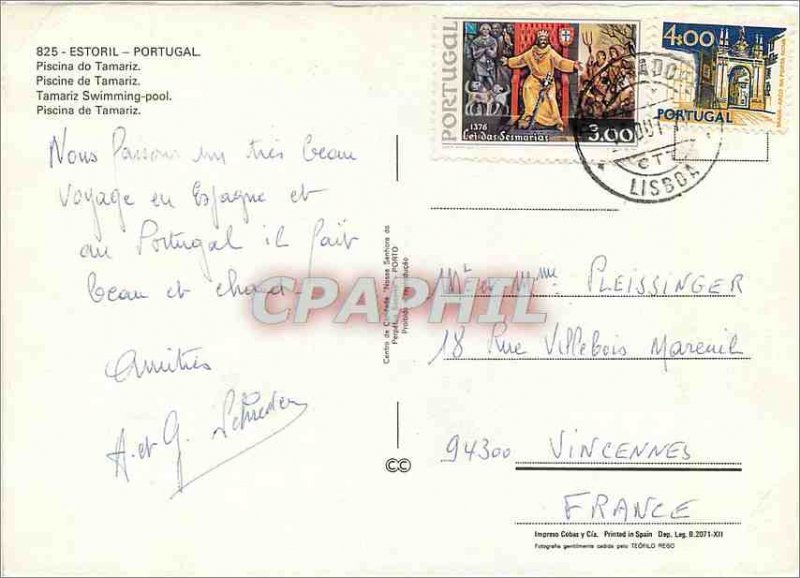 825 - ESTORIL - PORTUGAL.
Piscina do Tamariz.
Piscine de Tamariz.
Tamariz Swimming-pool.
Piscina de Tamariz.
Nous passons un très beau
voyage en Espagne et
au Portugal il fait
beau et chaud
Amitiés
A. et G.
PORTUGAL
1376
Lei das Sesmarias
3.00
4$00
PORTUGAL
OUT
CTT
LISBOA
CPAPHIL
Centro de Caridade "Nossa Senhora do
Perpétuo Socorro" - PORTO
Proibida a reprodução
Mr et Mme PLEISSINGER
18 Rue Villebois Mareuil
94300 VINCENNES
FRANCE
CC
Impreso Cobas y Cía. Printed in Spain Dep. Leg. B.2071-XII
Fotografia gentilmente cedida pelo TEÓFILO REGO